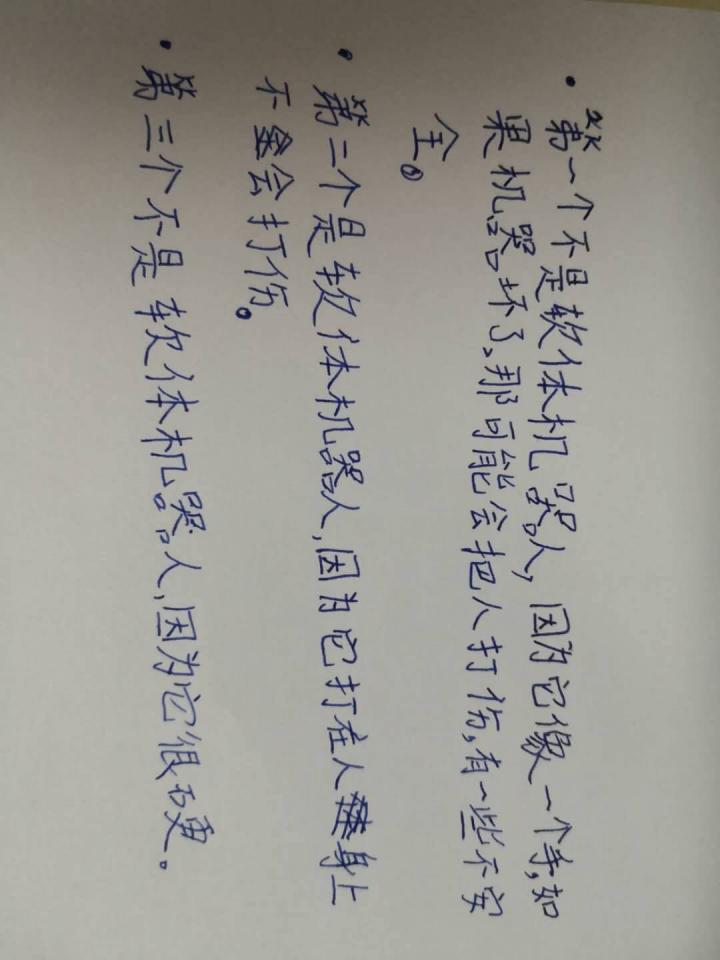 · 第一个不是软体机器人,因为它像一个手,如
果机器坏了,那可能会把人打伤,有一些不安
全。
· 第二个是软体机器人,因为它打在人身上
不会打伤。
· 第三个不是软体机器人,因为它很硬。